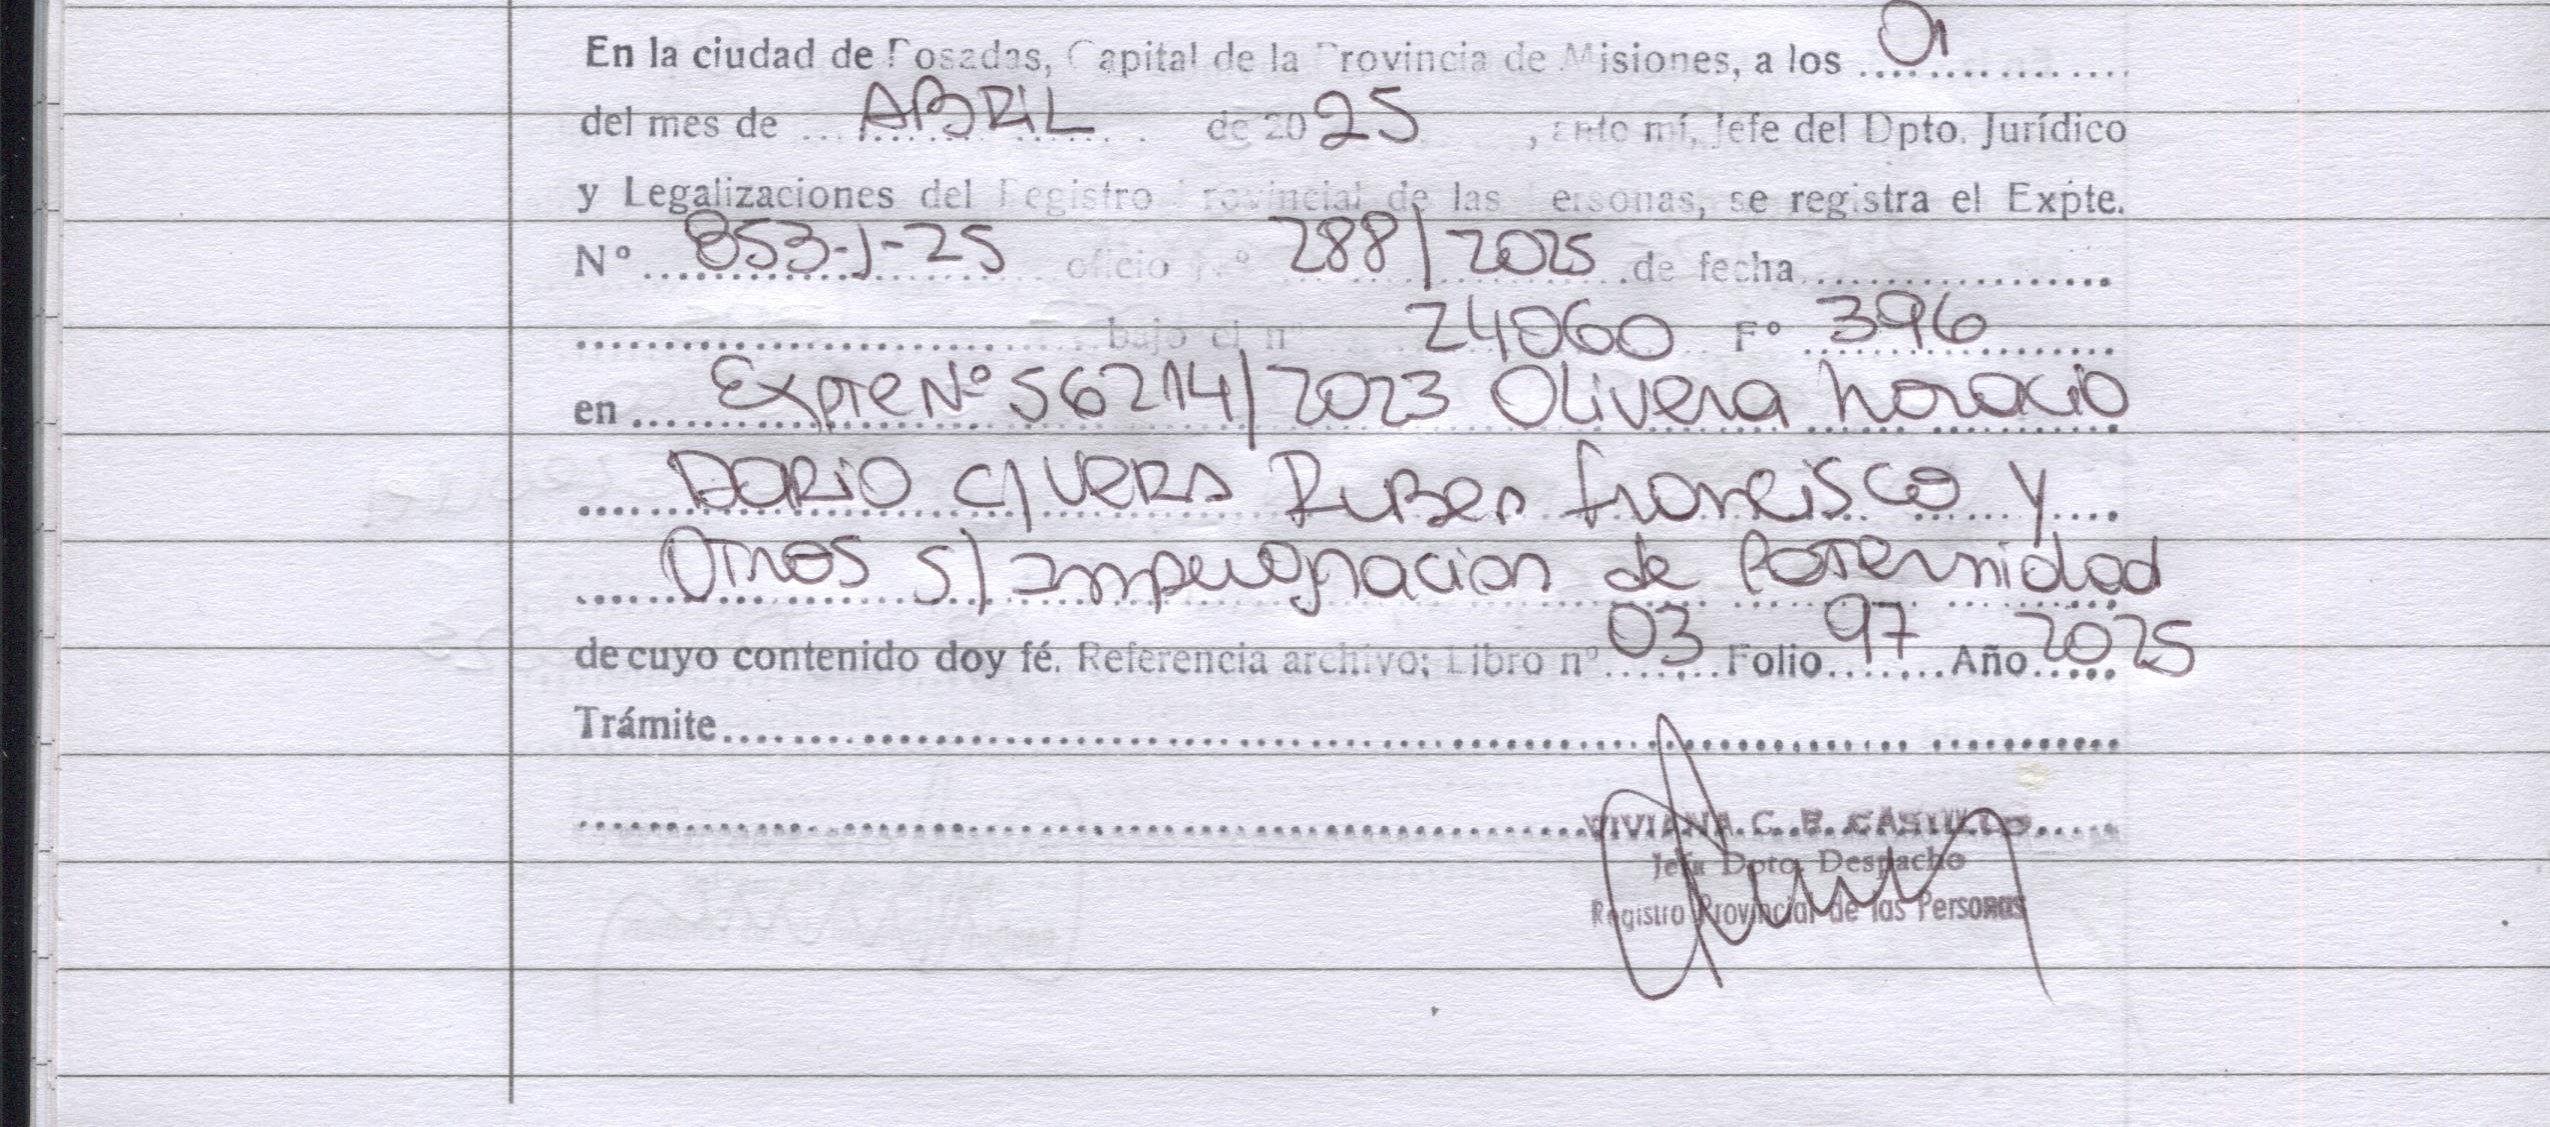 En la ciudad de Posadas, Capital de la Provincia de Misiones, a los 01
del mes de ABRIL de 2025, ante mí, Jefe del Dpto. Jurídico
y Legalizaciones del Registro Provincial de las Personas, se registra el Expte.
N° 853-J-25 oficio N° 288/2025 de fecha
bajo el n° 24060 F° 396
en Expte Nº 56214/2023 Olivera horacio
DARIO C/ VERA RUBen francisco y
Otros S/ Impugnacion de Paternidad
de cuyo contenido doy fé. Referencia archivo; Libro n° 03 Folio 97 Año 2025
Trámite
VIVIANA C. B. CASTILLO
Jefa Dpto. Despacho
Registro Provincial de las Personas